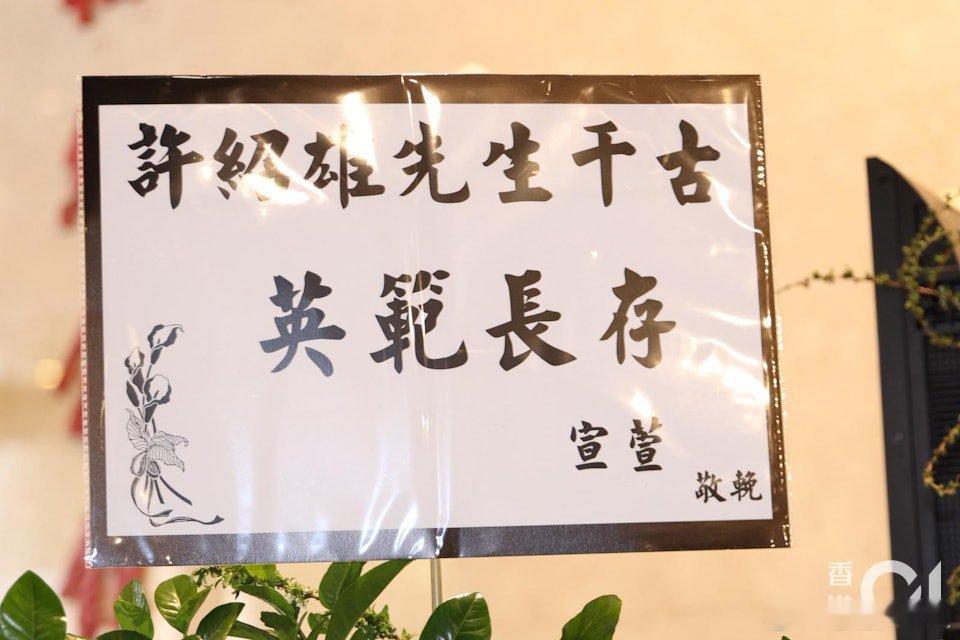 許紹雄先生千古
英範長存
宣萱
敬輓
香
01